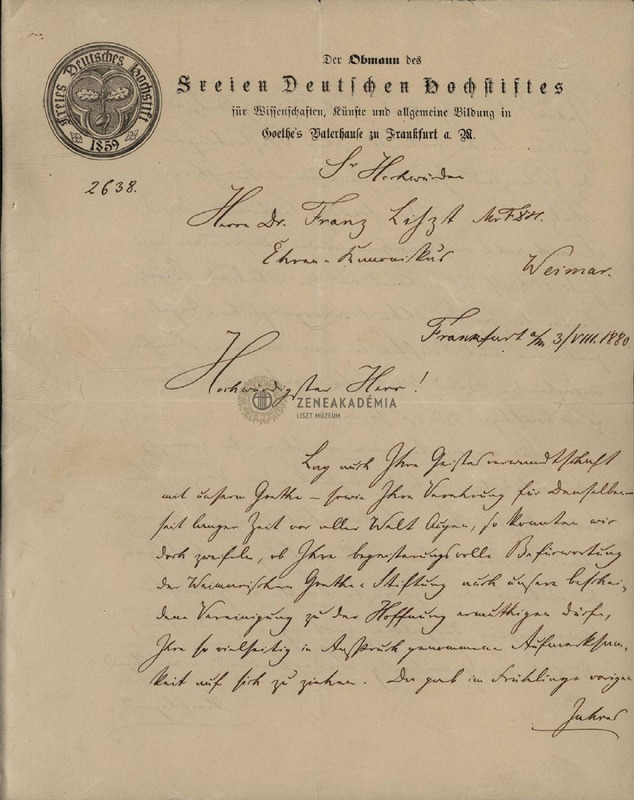 Freies Deutsches Hochstift
1859
Der Obmann des
Freien Deutschen Hochstiftes
für Wissenschaften, Künste und allgemeine Bildung in
Goethe's Vaterhause zu Frankfurt a. M.
2638.
Sr Hochwürden
Herrn Dr. Franz Liszt
Ehren-Kanonikus
Weimar.
Frankfurt a/M. 3/VIII. 1880
Hochwürdigster Herr!
ZENEAKADÉMIA
LISZT MÚZEUM
Lag auch Ihre Geistesverwandtschaft
mit unserm Goethe – sowie Ihre Verehrung für Denselben
seit langer Zeit vor aller Welt Augen, so konnten wir
doch zweifeln, ob Ihre begeisterungsvolle Befürwortung
der Weimarischen Goethe-Stiftung auch unsere beschei-
dene Vereinigung zu der Hoffnung ermuthigen dürfe,
Ihre so vielseitig in Anspruch genommene Aufmerksam-
keit auf sich zu ziehen. Da gab im Frühlinge vorigen
Jahres